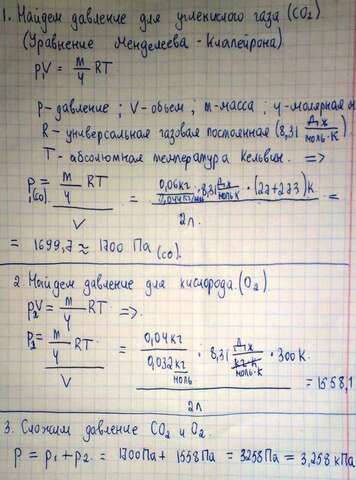 1. Найдем давление для углекислого газа (CO₂)
(Уравнение Менделеева - Клапейрона)
p₁V = m/μ RT
p - давление ; V - объем , m - масса , μ - молярная
R - универсальная газовая постоянная (8,31 Дж/моль·К)
T - абсолютная температура Кельвин. =>
p₁(CO) = m/μ RT / V = 0,06кг/0,044кг/моль · 8,31 Дж/моль·К · (27+273)К / 2л. =
= 1699,7 ≈ 1700 Па (CO).
2. Найдем давление для кислорода. (O₂)
p₂V = m/μ RT =>.
p₂ = m/μ RT / V = 0,04кг/0,032 кг/моль · 8,31 Дж/моль·К · 300К / 2л = 1558,1
3. Сложим давление CO₂ и O₂.
p = p₁ + p₂ = 1700Па + 1558Па = 3258Па = 3,258 кПа